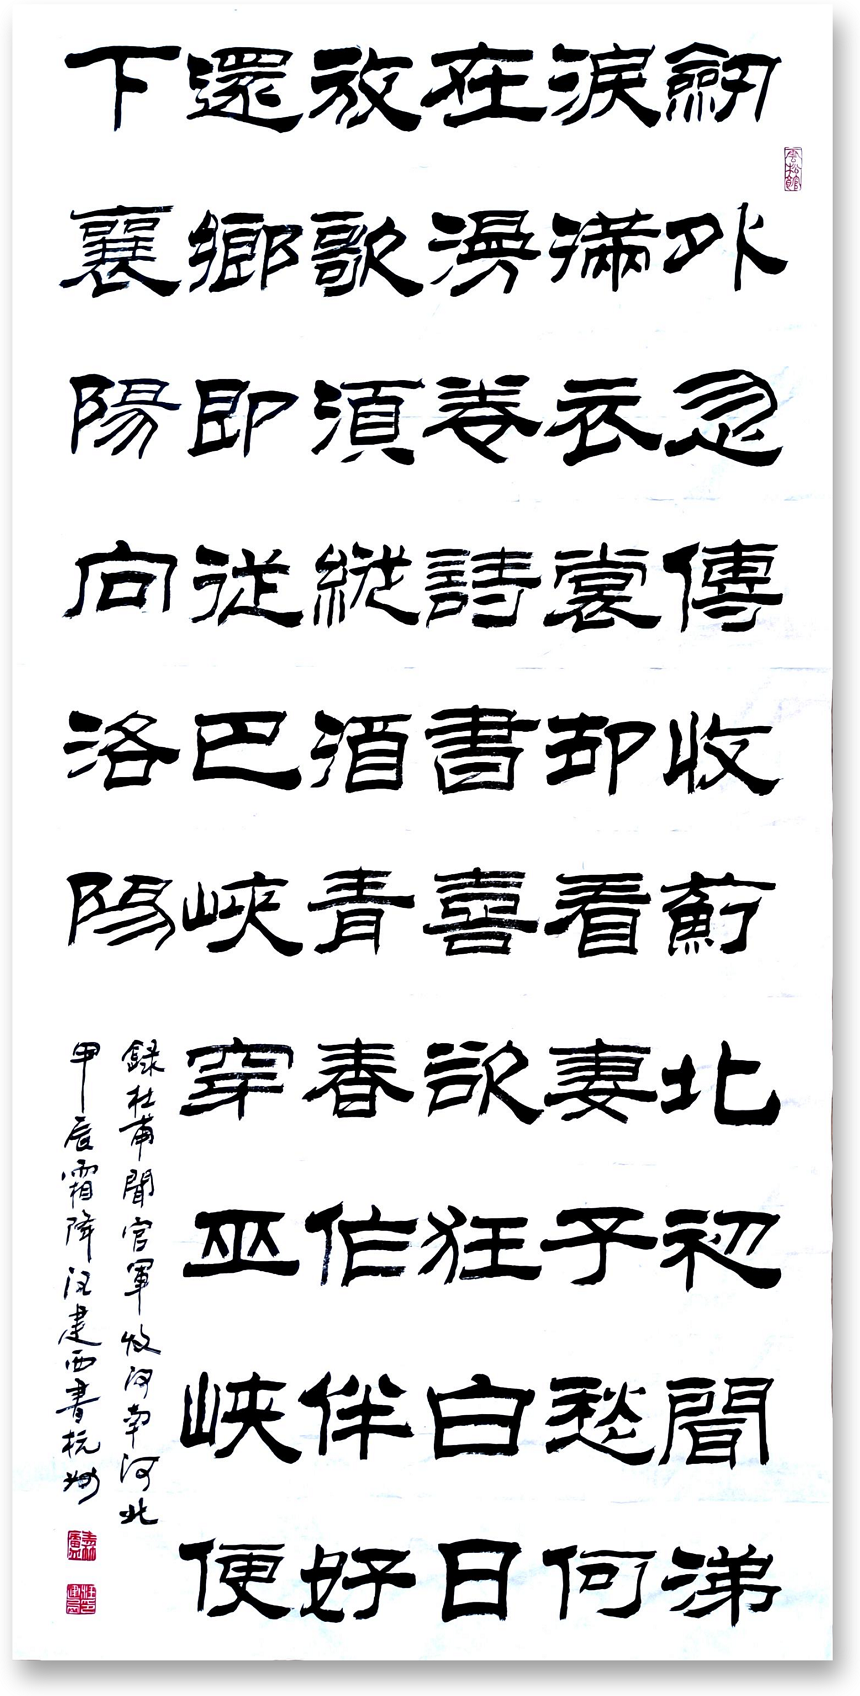 劒外忽傳收薊北初聞涕
淚滿衣裳却看妻子愁何
在漫卷詩書喜欲狂白日
放歌須縱酒青春作伴好
還鄉即從巴峽穿巫峽便
下襄陽向洛陽
錄杜甫聞官軍收河南河北
甲辰霜降汪建西書杭州